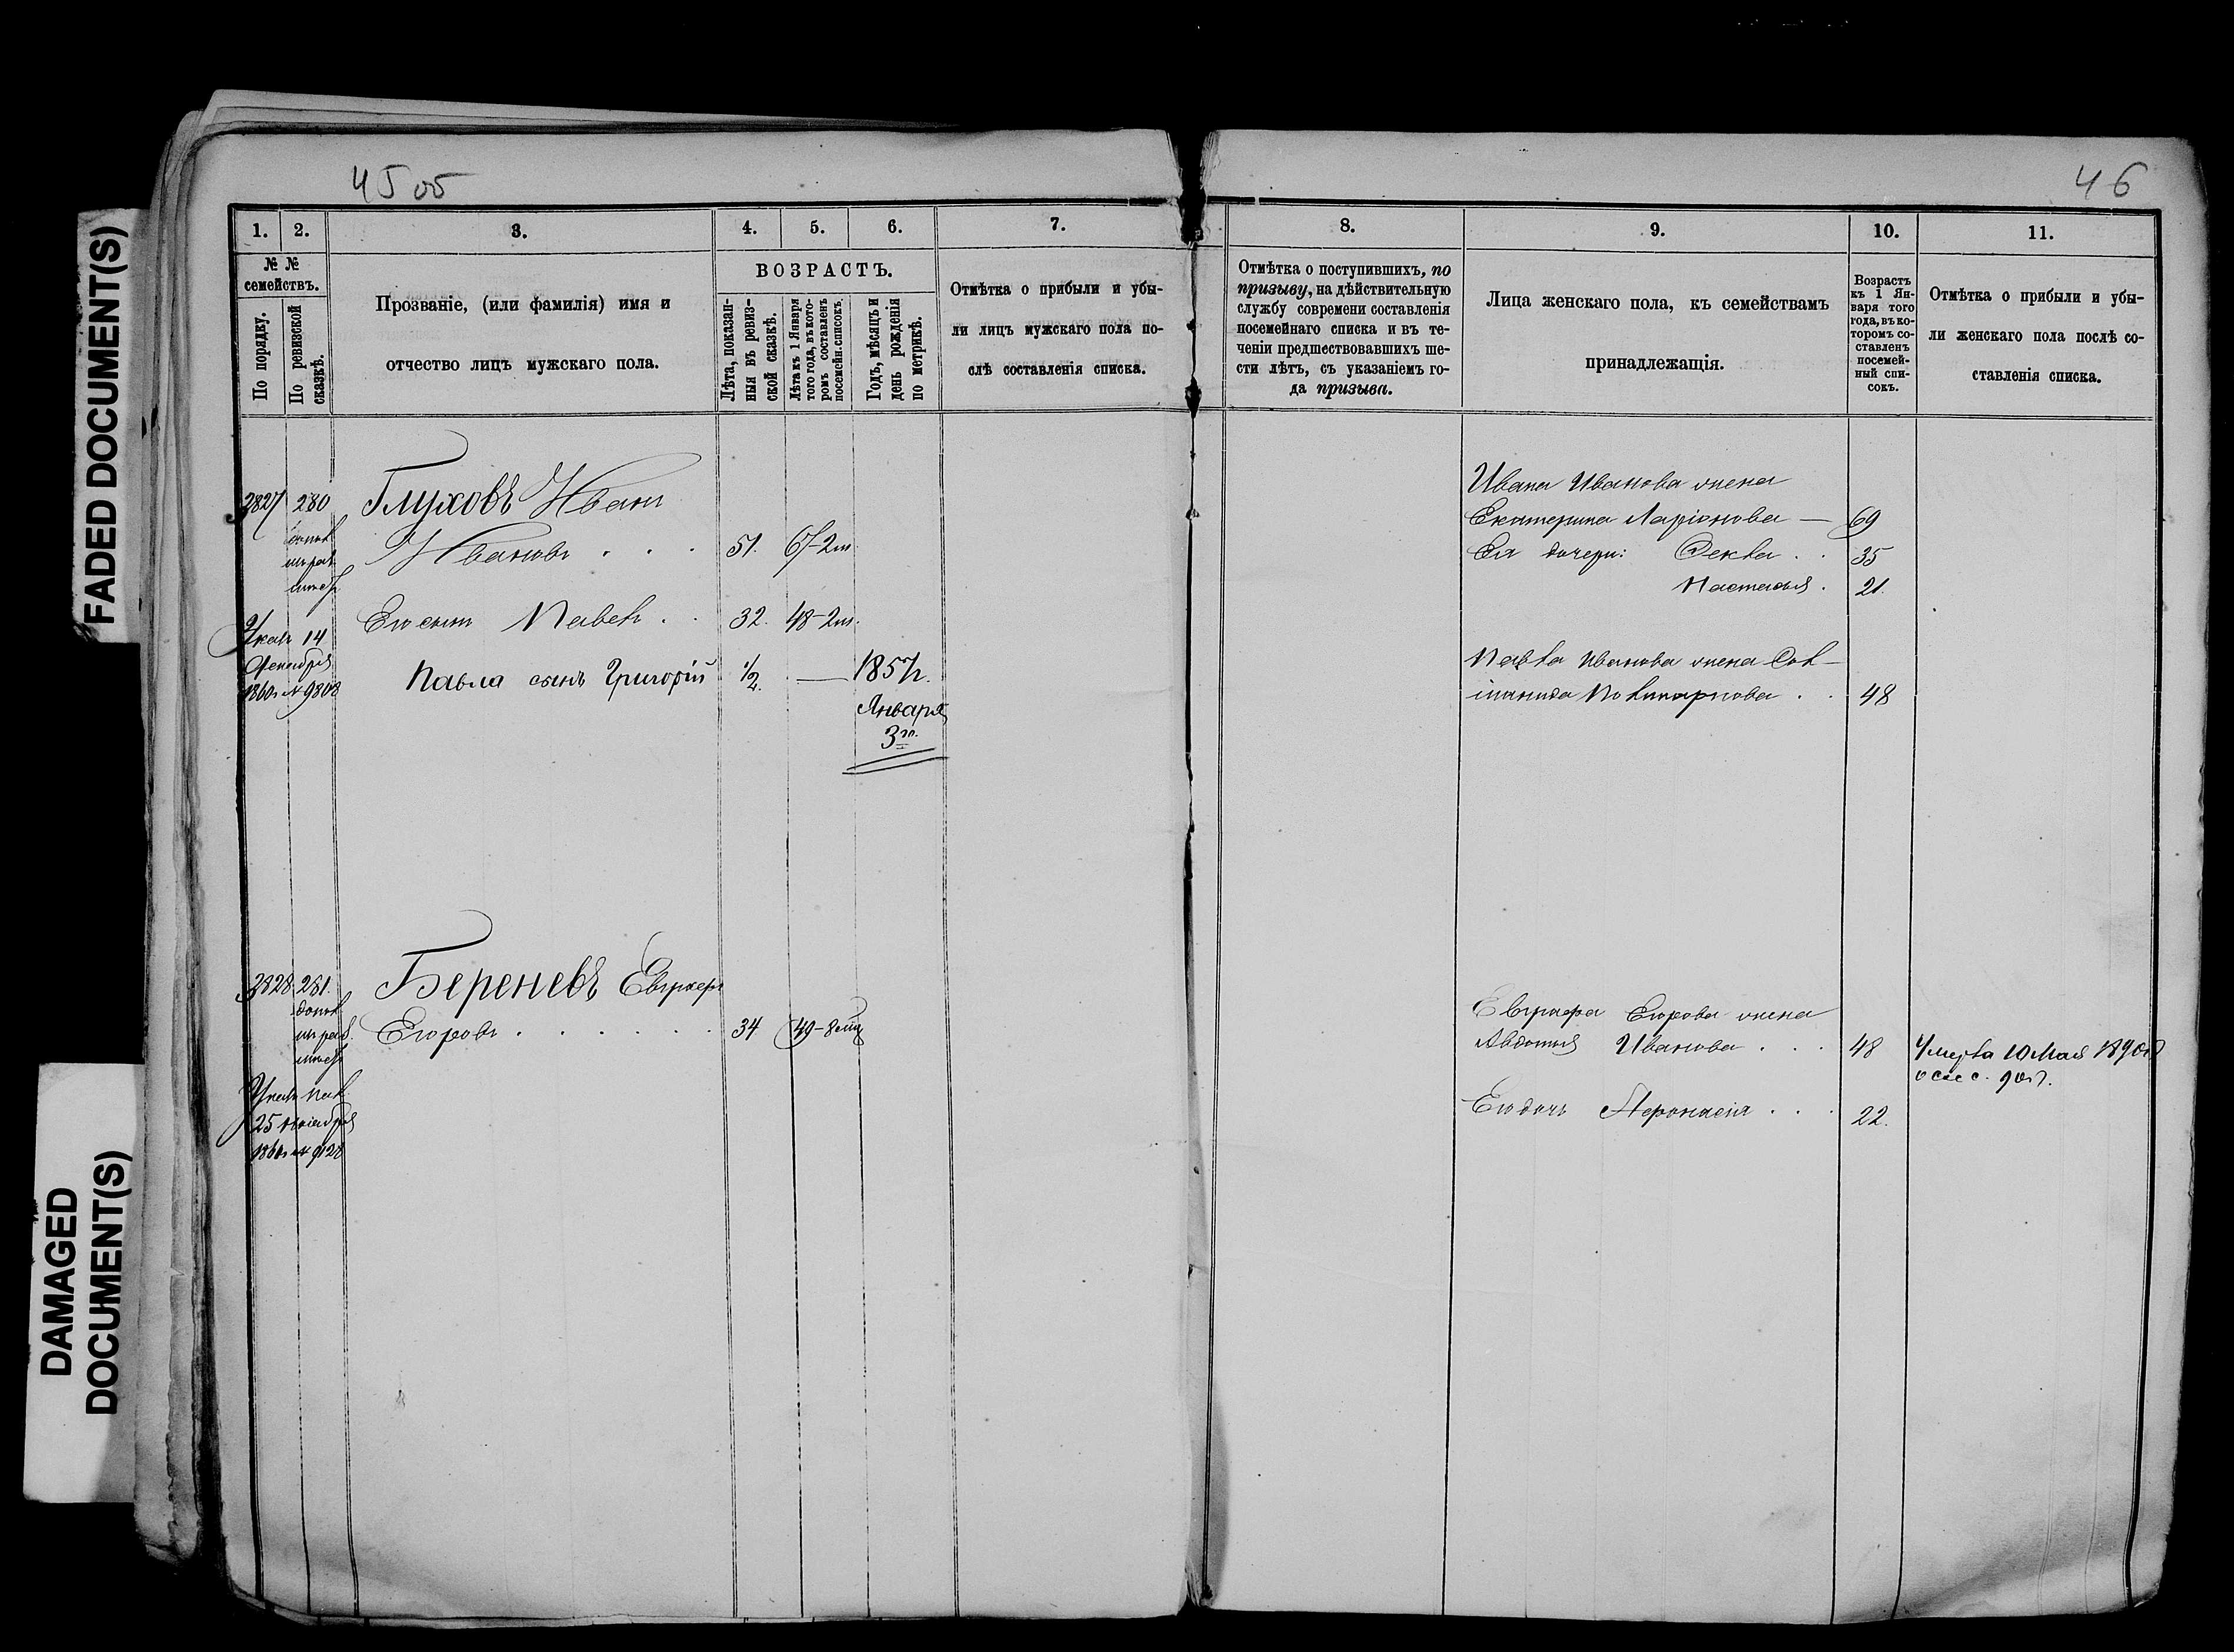 FADED DOCUMENT(S)
DAMAGED
DOCUMENT(S)
45 об
46
1.
2.
3.
4.
5.
6.
7.
8.
9.
10.
11.
№ №
семействъ.
По порядку.
По ревизской
сказкѣ.
Прозваніе, (или фамилія) имя и
отчество лицъ мужскаго пола.
ВОЗРАСТЪ.
Лѣта, показан-
ныя въ ревиз-
ской сказкѣ.
Лѣта къ 1 Января
того года, въ кото-
ромъ составленъ
посемейн. списокъ.
Годъ, мѣсяцъ и
день рожденія
по метрикѣ.
Отмѣтка о прибыли и убы-
ли лицъ мужскаго пола по-
слѣ составленія списка.
Отмѣтка о поступившихъ, по
призыву, на дѣйствительную
службу современи составленія
посемейнаго списка и въ те-
ченіи предшествовавшихъ ше-
сти лѣтъ, съ указаніемъ го-
да призыва.
Лица женскаго пола, къ семействамъ
принадлежащія.
Возрастъ
къ 1 Ян-
варя того
года, въ ко-
торомъ со-
ставленъ
посемей-
ный спи-
сокъ.
Отмѣтка о прибыли и убы-
ли женскаго пола послѣ со-
ставленія списка.
3827 280 Глуховъ Иванъ
Ивановъ . . . 51. 67-2м.
Его сынъ Павелъ . . 32. 48-2м.
Павла сынъ Григорій 1/2. — 1857г.
Января
3го.
14
Декабря
1860г № 9808
Ивана Иванова жена
Екатерина Ларіонова — 69
Ея дочери: Фекла . . 35
Настасья . 21.
Павла Иванова жена Сол-
іманида Поликарпова . . 48
3828 281. Береневъ Евграфъ
Егоровъ . . . . . . 34 49-8мц
25 Ноября
1860г № 9128
Евграфа Егорова жена
Авдотья Иванова . . . 48 Умерла 10 Мая 1890г
Его дочь Афонасія . . . 22.